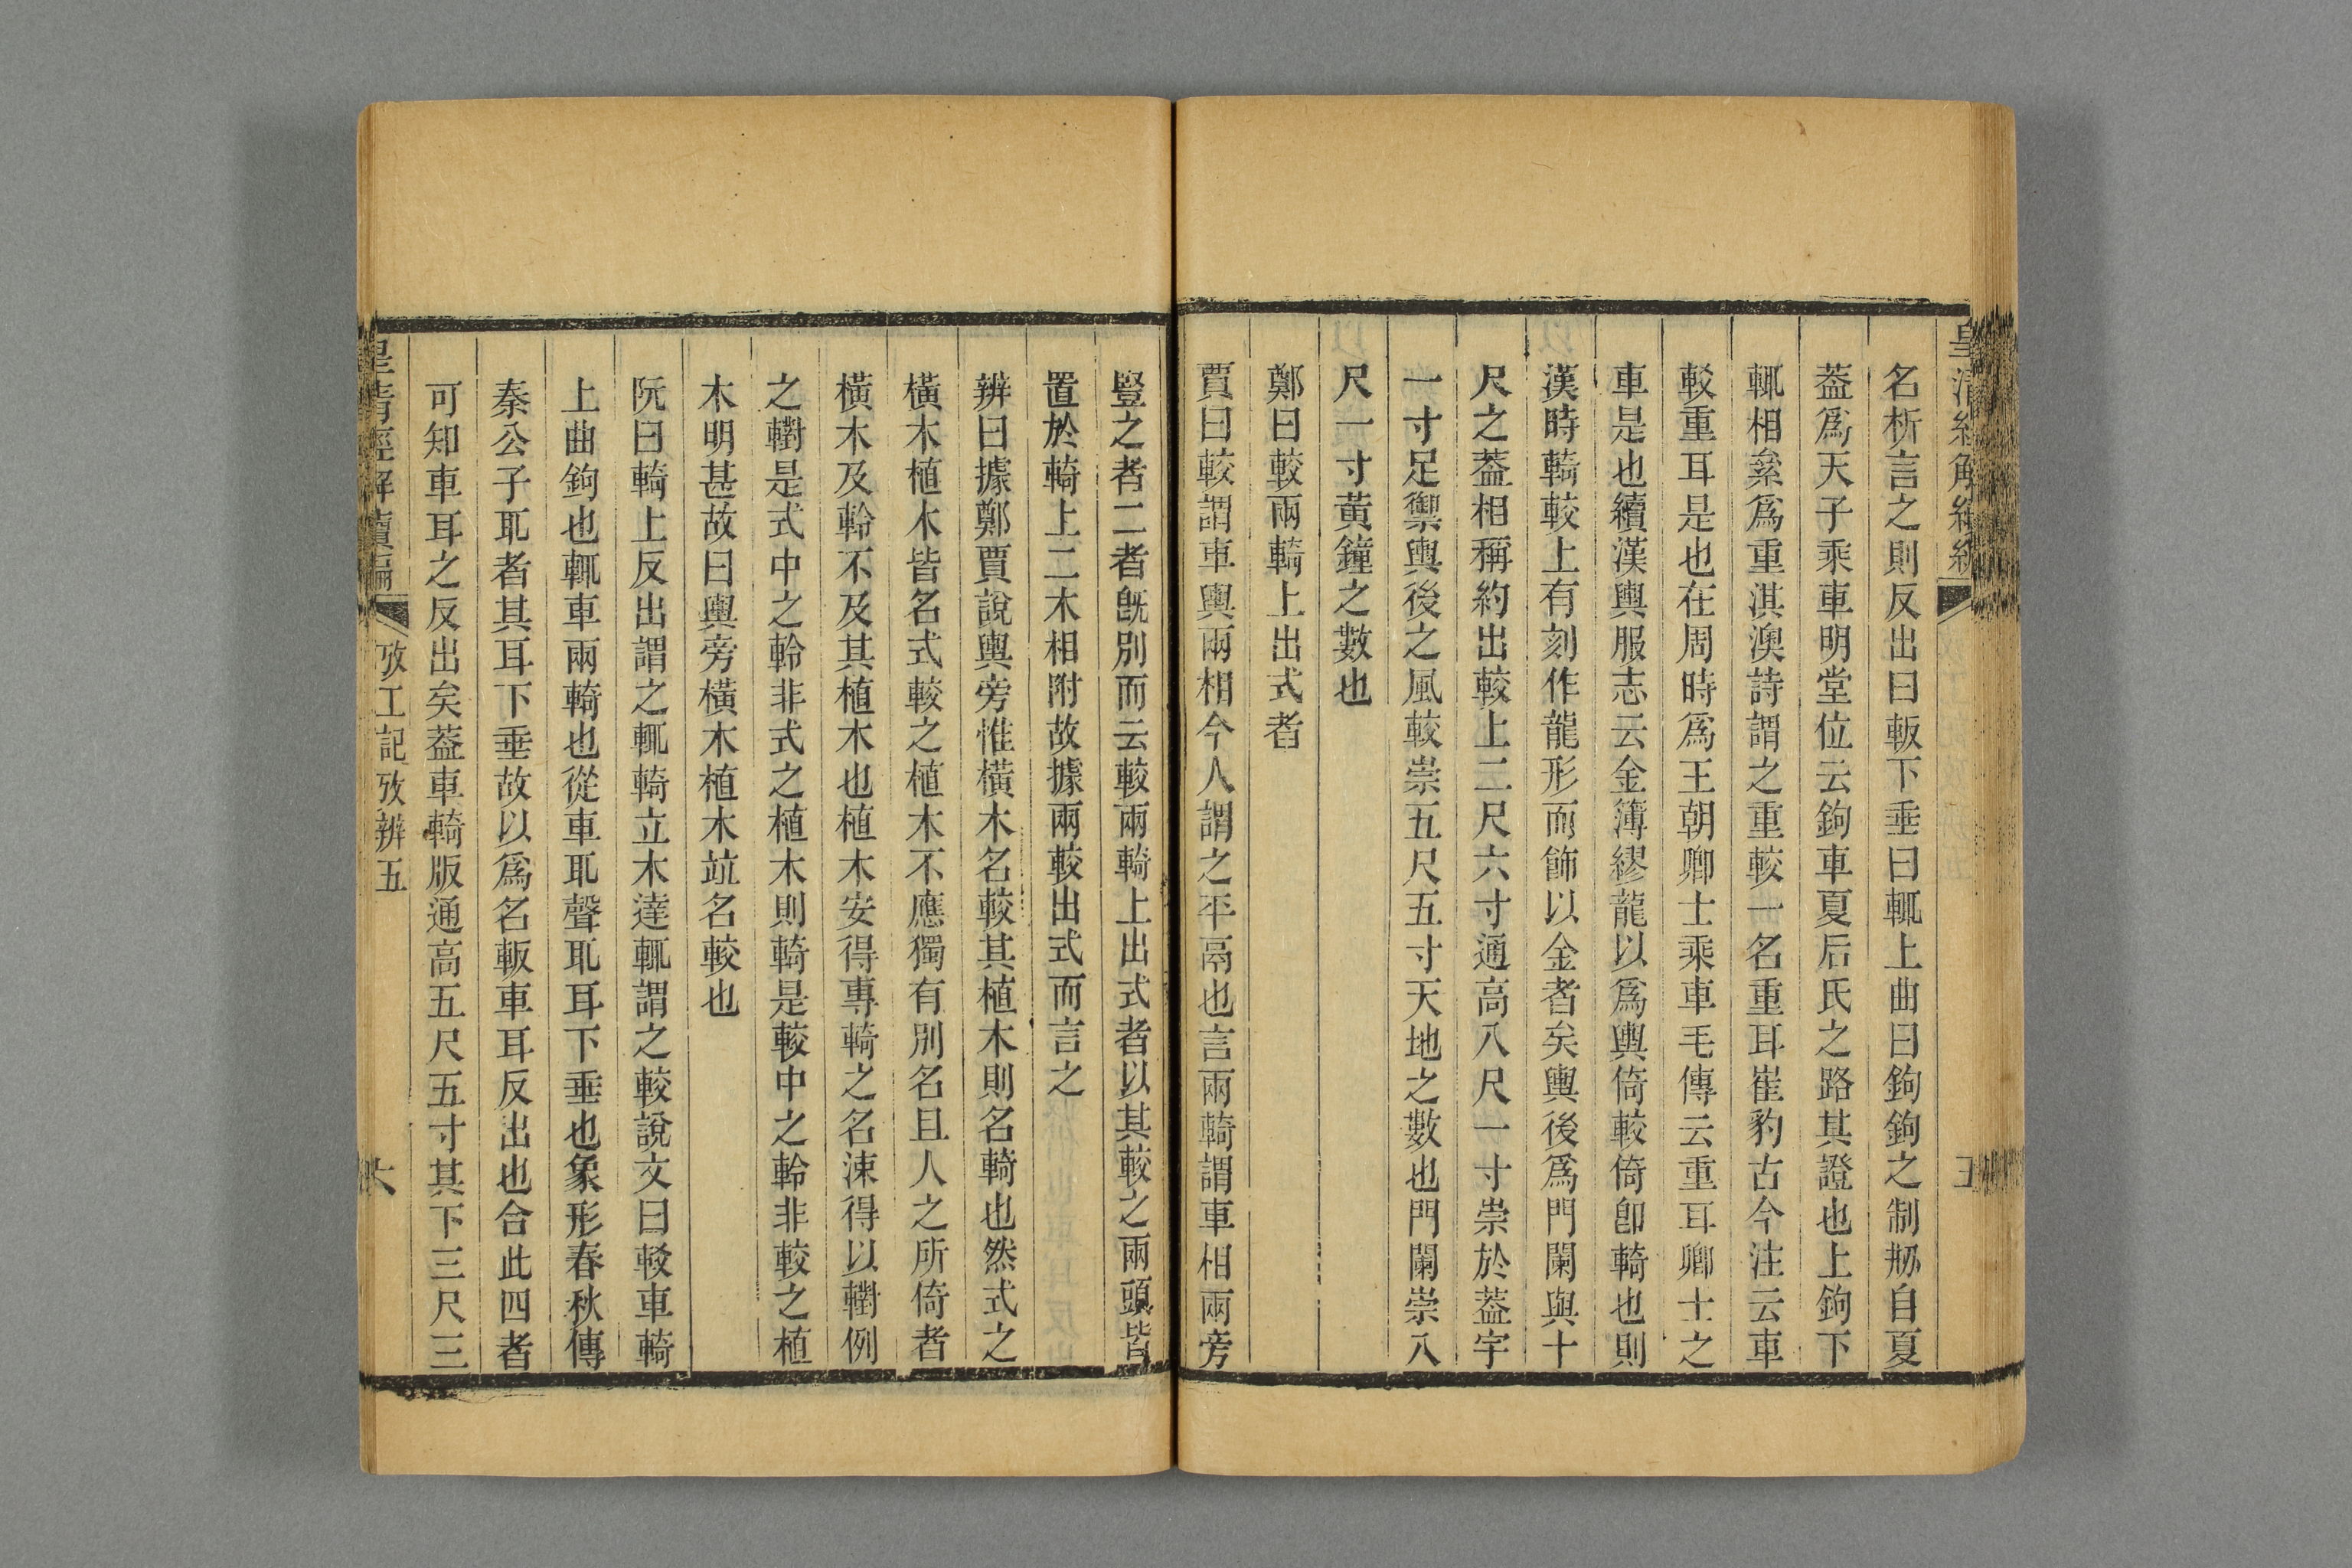 皇清經解續編
名析言之則反出曰軓下垂曰輒上曲曰鉤鉤之制刱自夏
葢爲天子乘車明堂位云鉤車夏后氏之路其證也上鉤下
輒相絫爲重淇澳詩謂之重較一名重耳崔豹古今注云車
較重耳是也在周時爲王朝卿士乘車毛傳云重耳卿士之
車是也續漢輿服志云金薄繆龍以爲輿倚較倚卽輢也則
漢時輢較上有刻作龍形而飾以金者矣輿後爲門闌與十
尺之葢相稱約出較上二尺六寸通高八尺一寸崇於葢宇
一寸足禦輿後之風較崇五尺五寸天地之數也門闌崇八
尺一寸黃鐘之數也
鄭曰較兩輢上出式者
賈曰較謂車輿兩相今人謂之平鬲也言兩輢謂車相兩旁
豎之者二者旣別而云較兩輢上出式者以其較之兩頭皆
置於輢上二木相附故據兩較出式而言之
辨曰據鄭賈說輿旁惟橫木名較其植木則名輢也然式之
橫木植木皆名式較之植木不應獨有別名且人之所倚者
橫木及軨不及其植木也植木安得專輢之名涑得以轛例
之轛是式中之軨非式之植木則輢是較中之軨非較之植
木明甚故曰輿旁橫木植木竝名較也
阮曰輢上反出謂之輒輢立木達輒謂之較說文曰較車輢
上曲鉤也輒車兩輢也從車耴聲耴耳下垂也象形春秋傳
秦公子耴者其耳下垂故以爲名軓車耳反出也合此四者
可知車耳之反出矣葢車輢版通高五尺五寸其下三尺三
皇清經解續編
攷工記攷辨五
六